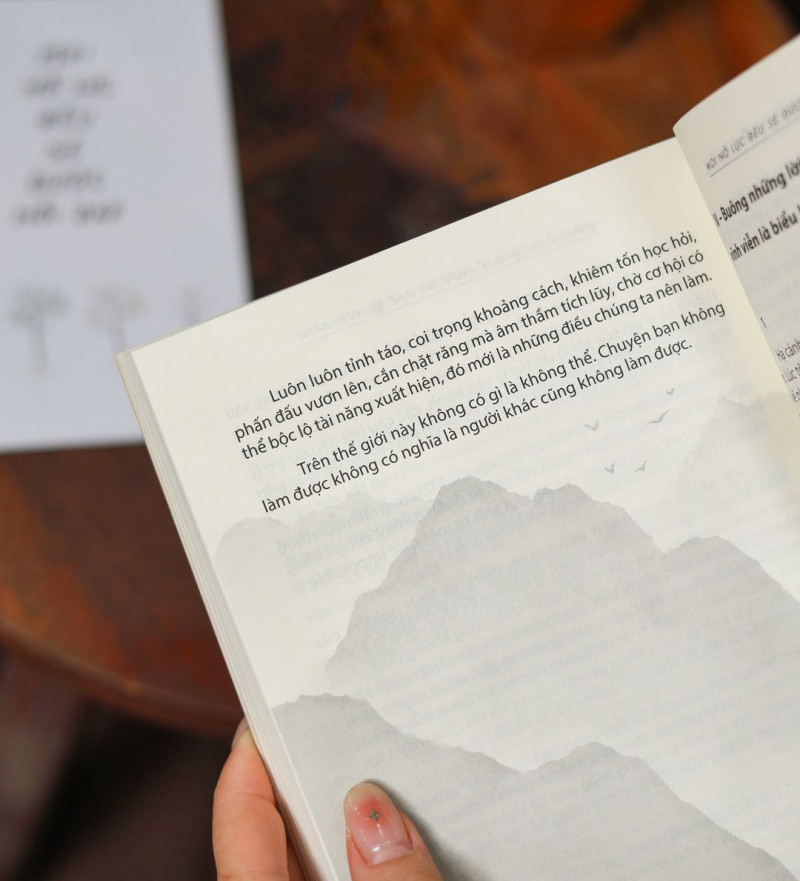 Luôn luôn tỉnh táo, coi trọng khoảng cách, khiêm tốn học hỏi,
phấn đấu vươn lên, cắn chặt răng mà âm thầm tích lũy, chờ cơ hội có
thể bộc lộ tài năng xuất hiện, đó mới là những điều chúng ta nên làm.
Trên thế giới này không có gì là không thể. Chuyện bạn không
làm được không có nghĩa là người khác cũng không làm được.
MỌI NỖ LỰC ĐỀU SẼ ĐƯỢC
- Buông những lời
viễn là biểu
1